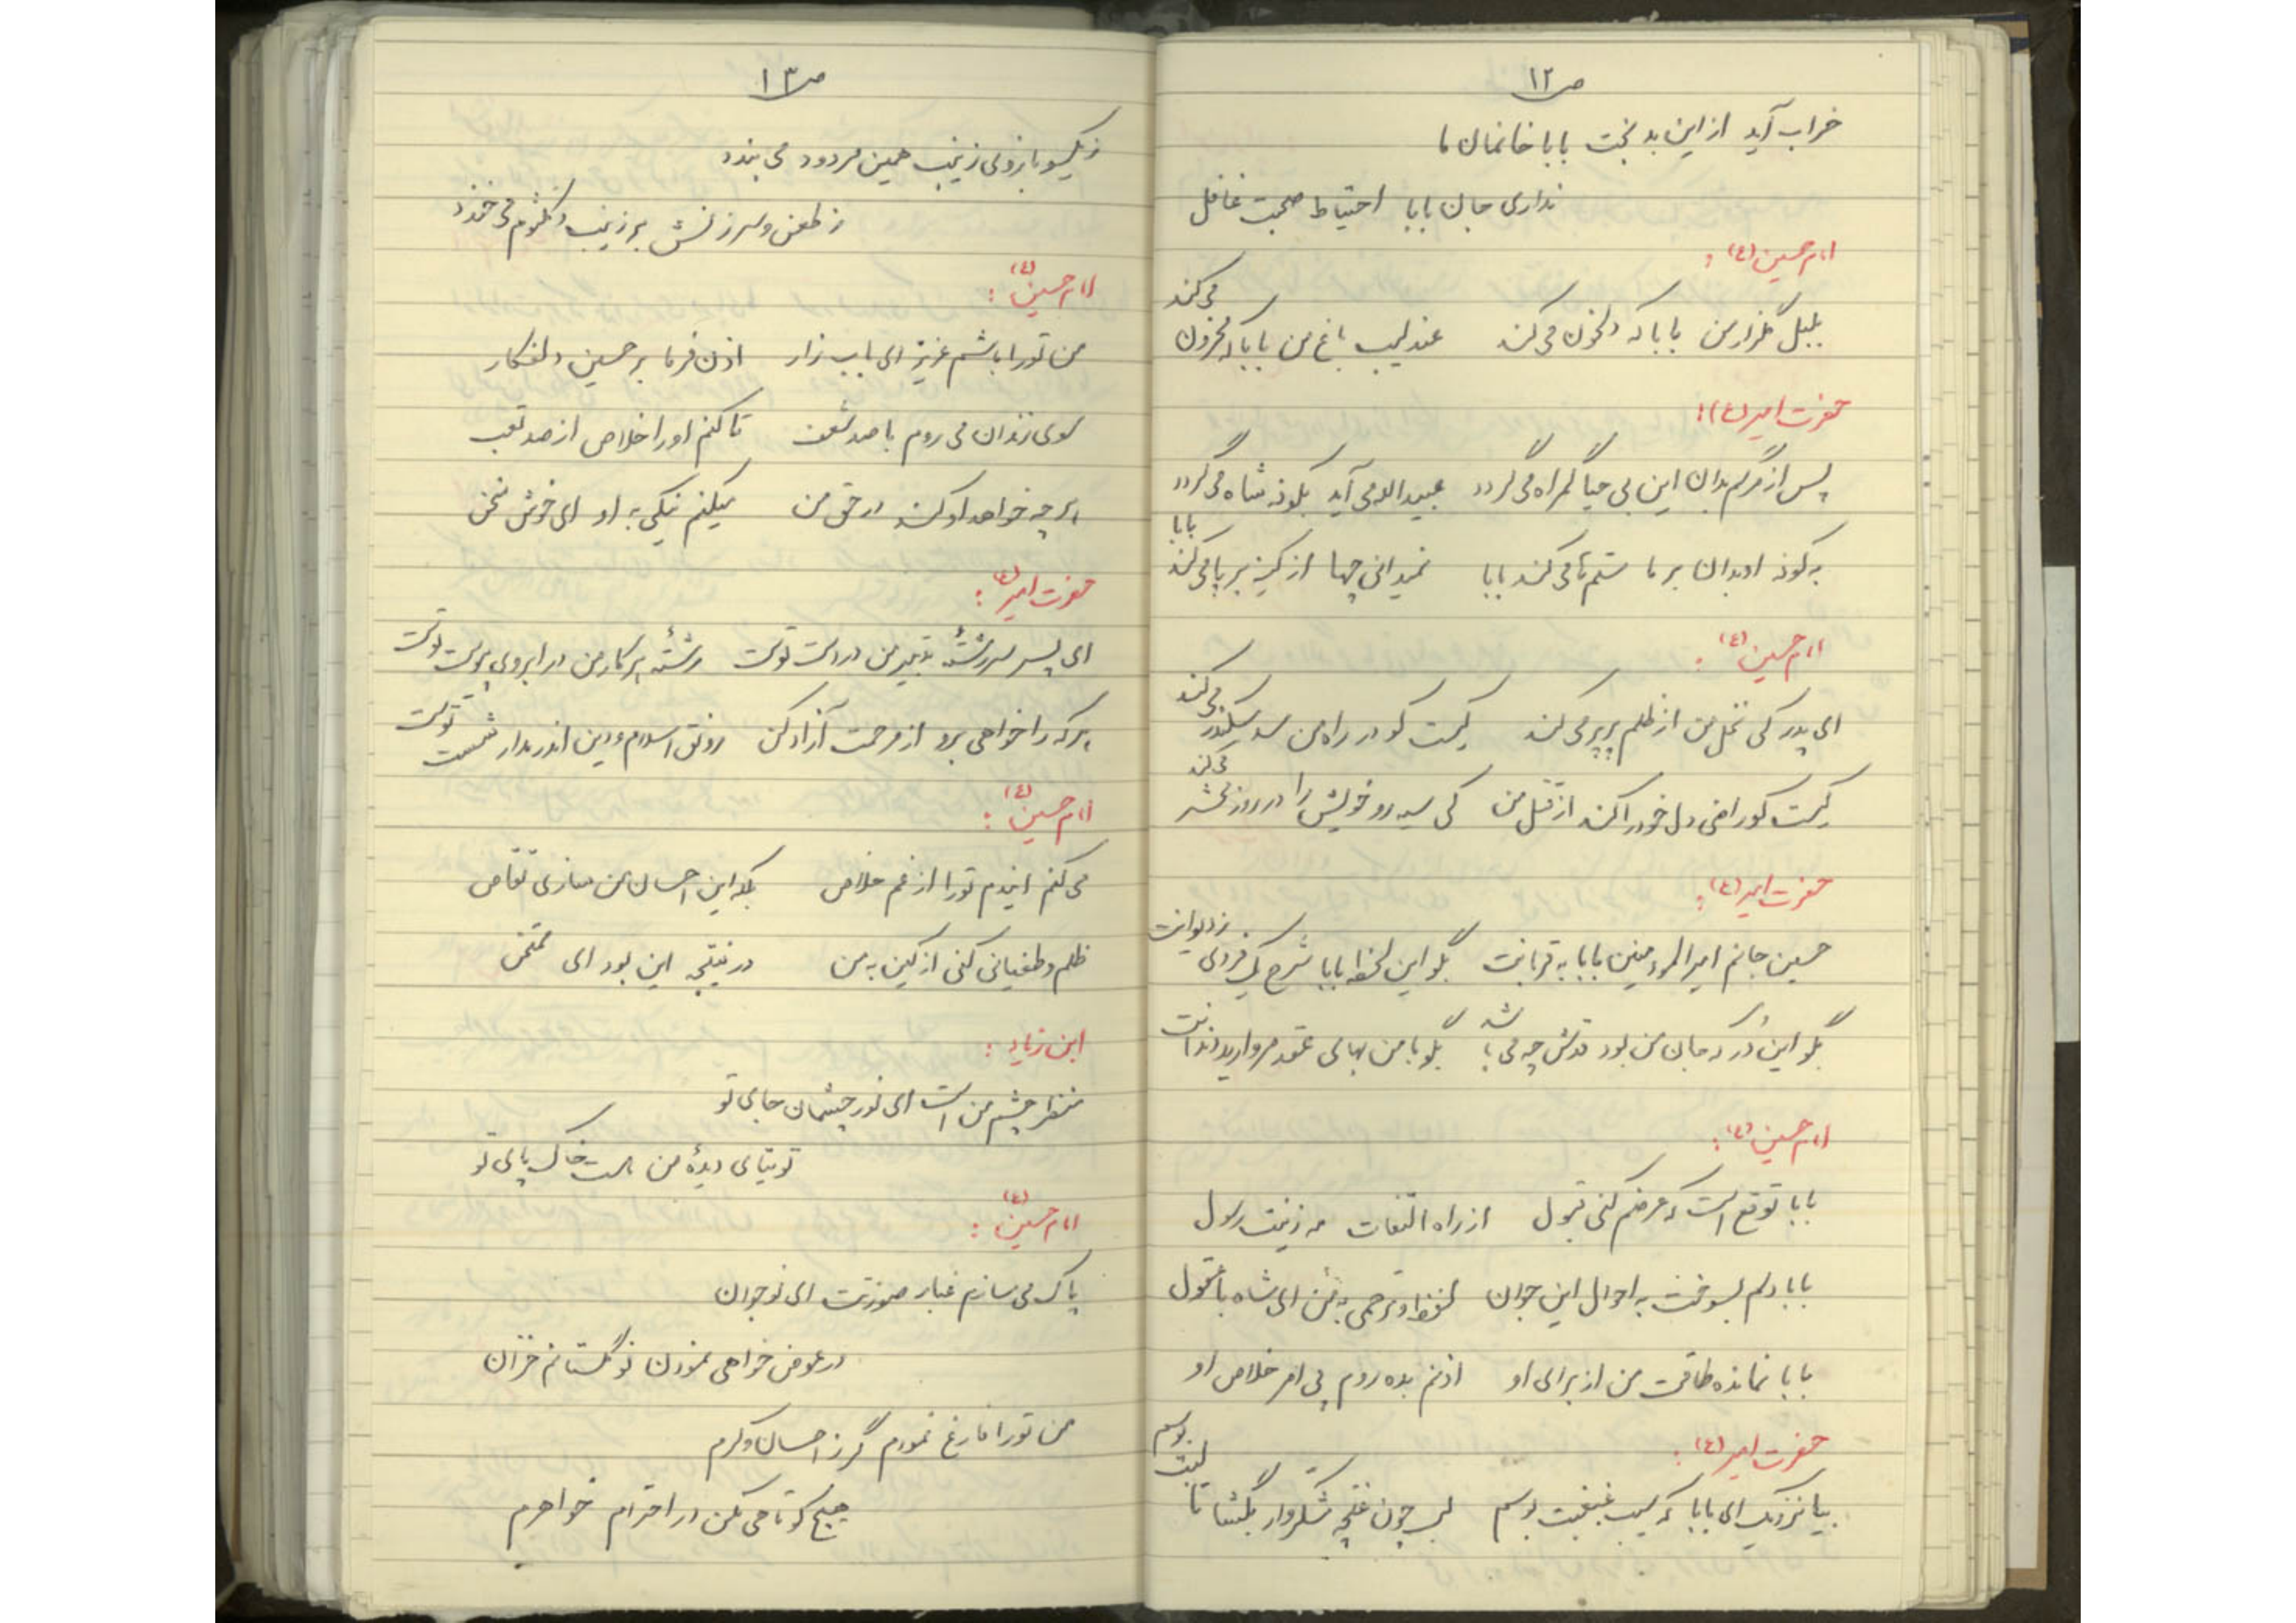 ص ۱۲
خراب آید از این بدبخت بابا خانمان ما
نداری جان بابا احتیاط صحبت غافل
امام حسین (ع) :
بلبل گلزار من بابا که دلخون می کند    عندلیب باغ من بابا که محزون می کند
حضرت امیر (ع) :
پس از مرگم بدان این بی حیا گمراه می گردد    عبیدالله می آید بکوفه شاه می گردد
به کوفه او بدان بر ما ستم ها می کند بابا    نمیدانی چها از کینه بر پا می کند بابا
امام حسین (ع) :
ای پدر کی نخل من از ظلم پرپر می کند    کیست کو در راه من سد سکندر می کند
کیست کو راضی دل خود را کند از قتل من    کی سیه رو خویش را در روز محشر می کند
حضرت امیر (ع) :
حسین جانم امیرالمؤمنین بابا به قربانت    بگو این لحظه بابا شرح یک فردی ز دیوانت
بگو این دُر که جان من بود قدرش چه می باشد    بگو با من بهای عقد مروارید دندانت
امام حسین (ع) :
بابا توقع است که عرضم کنی قبول    از راه التفات مه زینت رسول
بابا دلم بسوخت به احوال این جوان    لطف و ترحمی به من ای شاه با عقول
بابا نمانده طاقت من از برای او    اذنم بده روم پی امر خلاص او
حضرت امیر (ع) :
بیا نزدیک ای بابا که سیب غبغبت بوسم    لب چون غنچه شکروار بگشا تا لبت بوسم
ص ۱۳
ز گیسو بازوی زینب همین مردود می بندد
ز طعن و سرزنش بر زینب و کلثوم می خندد
امام حسین (ع) :
من تورا باشم عزیز ای باب زار    اذن فرما بر حسین دلفکار
سوی زندان می روم با صد شعف    تا کنم اورا خلاص از صد تعب
هر چه خواهد او کند در حق من    میکنم نیکی به او ای خوش سخن
حضرت امیر (ع) :
ای پسر سررشتهٔ تدبیر من در دست توست    رشتهٔ هر کار من در ابروی پیوست توست
هر که را خواهی برو از مرحمت آزاد کن    رونق اسلام و دین اندر مدار شست توست
امام حسین (ع) :
می کنم ایندم تورا از غم خلاص    بلکه این احسان من سازی تقاص
ظلم و طغیانی کنی از کین به من    در نتیجه این بود ای ممتحن
ابن زیاد :
منظر چشم من است ای نور چشمان جای تو
توتیای دیدهٔ من هست خاک پای تو
امام حسین (ع) :
پاک می سازم غبار صورتت ای نوجوان
در عوض خواهی نمودن نوگلستانم خزان
من تورا فارغ نمودم گر ز احسان و کرم
هیچ کوتاهی مکن در احترام خواهرم